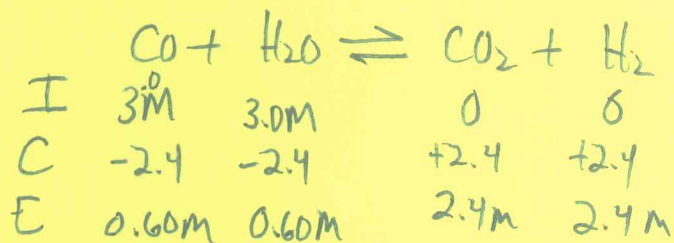 CO + H₂O ⇌ CO₂ + H₂
I 3.0M 3.0M 0 0
C -2.4 -2.4 +2.4 +2.4
E 0.60M 0.60M 2.4M 2.4M